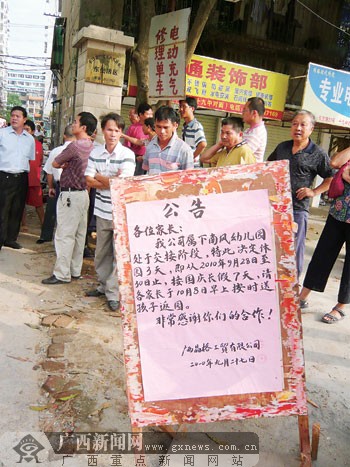 电动充气
修理单车
通装饰部
专业
公告
各位家长：
我公司属下南风幼儿园
处于交接阶段，特此决定休
园3天，即从2010年9月28日至
30日止，按国庆长假7天，请
各家长于10月8日早上按时送
孩子返园。
非常感谢你们的合作！
工贸有限公司
2010年九月二十七日
广西新闻网
www.gxnews.com.cn
广西重点新闻网站